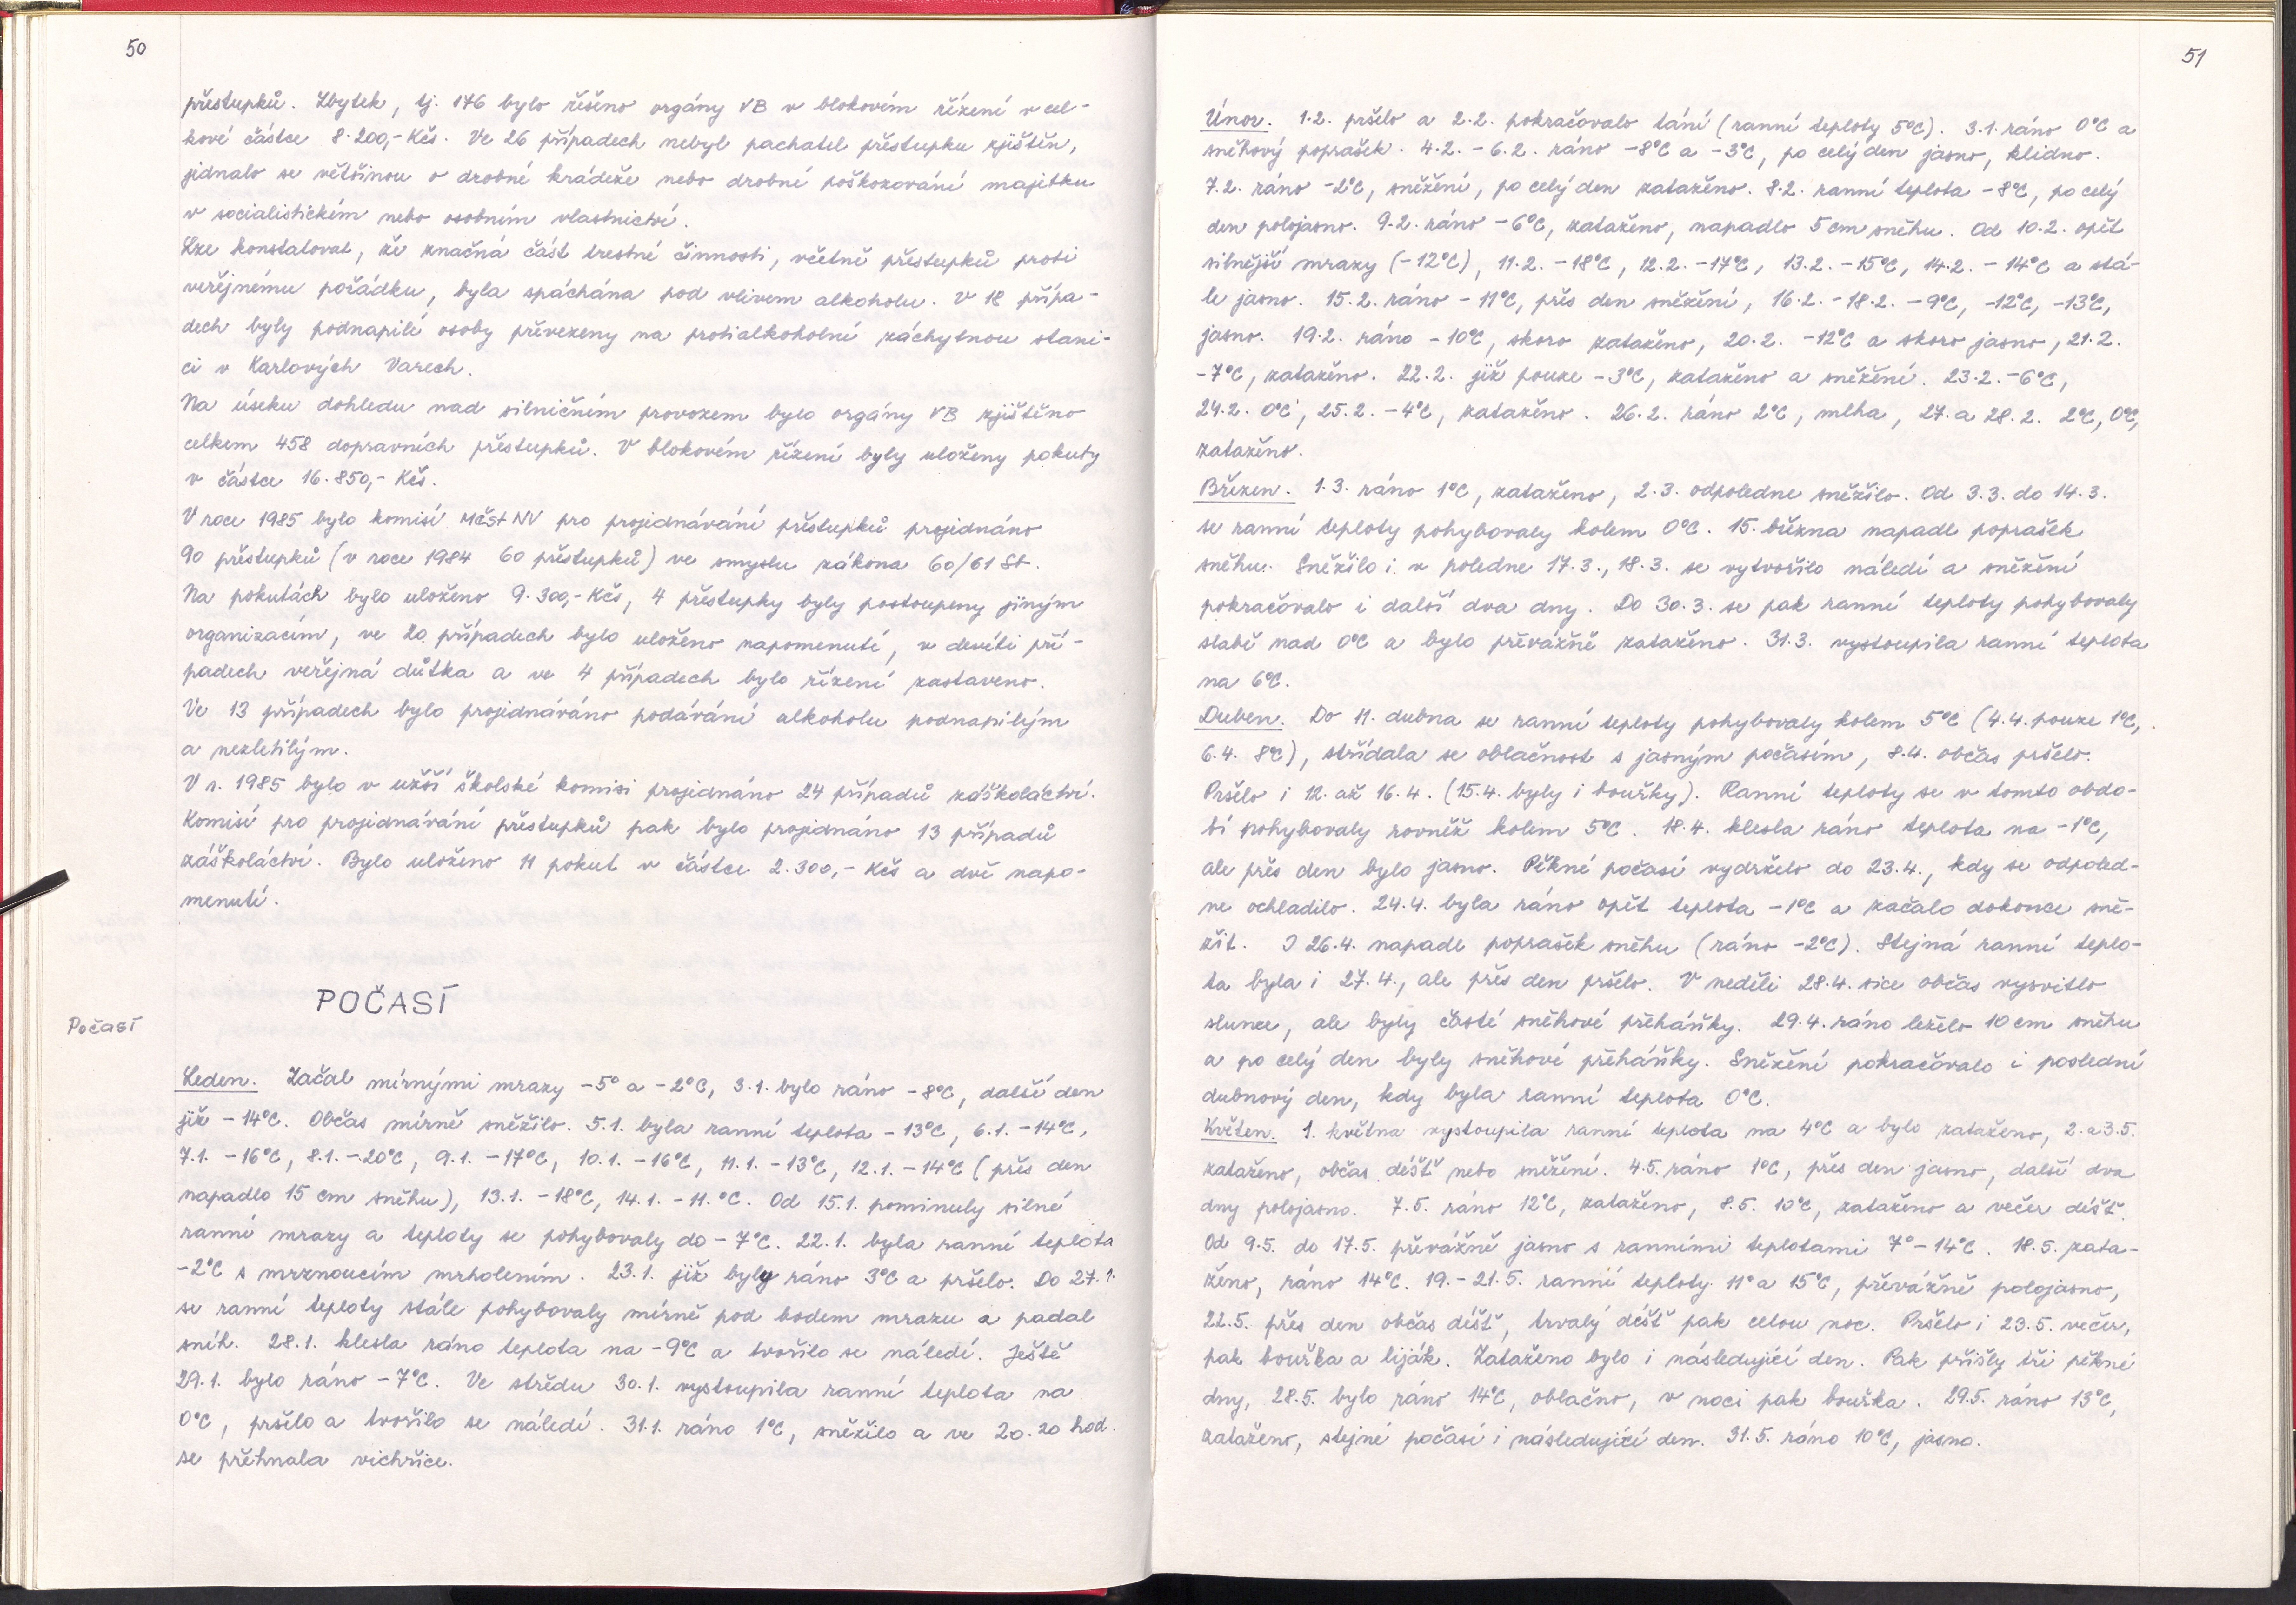 50
přestupků. Zbytek, tj. 176 bylo řešeno orgány VB v blokovém řízení v cel-
kové částce 8.200,- Kčs. Ve 26 případech nebyl pachatel přestupku zjištěn,
jednalo se většinou o drobné krádeže nebo drobné poškozování majetku
v socialistickém nebo osobním vlastnictví.
Lze konstatovat, že značná část trestné činnosti, včetně přestupků proti
veřejnému pořádku, byla spáchána pod vlivem alkoholu. V 18 přípa-
dech byly podnapilé osoby převezeny na protialkoholní záchytnou stani-
ci v Karlových Varech.
Na úseku dohledu nad silničním provozem bylo orgány VB zjištěno
celkem 458 dopravních přestupků. V blokovém řízení byly uloženy pokuty
v částce 16.850,- Kčs.
V roce 1985 bylo komisí MěstNV pro projednávání přestupků projednáno
90 přestupků (v roce 1984 60 přestupků) ve smyslu zákona 60/61 Sb.
Na pokutách bylo uloženo 9.300,- Kčs, 4 přestupky byly postoupeny jiným
organizacím, ve 20 případech bylo uloženo napomenutí, v devíti pří-
padech veřejná důtka a ve 4 případech bylo řízení zastaveno.
Ve 13 případech bylo projednáváno podávání alkoholu podnapilým
a nezletilým.
V r. 1985 bylo v užší školské komisi projednáno 24 případů záškoláctví.
Komisí pro projednávání přestupků pak bylo projednáno 13 případů
záškoláctví. Bylo uloženo 11 pokut v částce 2.300,- Kčs a dvě napo-
menutí.
POČASÍ
Počasí
Leden. Začal mírnými mrazy -5° a -2°C, 3.1. bylo ráno -8°C, další den
již -14°C. Občas mírně sněžilo. 5.1. byla ranní teplota -13°C, 6.1. -14°C,
7.1. -16°C, 8.1. -20°C, 9.1. -17°C, 10.1. -16°C, 11.1. -13°C, 12.1. -14°C (přes den
napadlo 15 cm sněhu), 13.1. -18°C, 14.1. -11.°C. Od 15.1. pominuly silné
ranní mrazy a teploty se pohybovaly do -7°C. 22.1. byla ranní teplota
-2°C s mrznoucím mrholením. 23.1. již byly ráno 3°C a pršelo. Do 27.1.
se ranní teploty stále pohybovaly mírně pod bodem mrazu a padal
sníh. 28.1. klesla ráno teplota na -9°C a tvořilo se náledí. Ještě
29.1. bylo ráno -7°C. Ve středu 30.1. vystoupila ranní teplota na
0°C, pršelo a tvořilo se náledí. 31.1. ráno 1°C, sněžilo a ve 20.20 hod.
se přehnala vichřice.
51
Únor. 1.2. pršelo a 2.2. pokračovalo tání (ranní teploty 5°C). 3.1. ráno 0°C a
sněhový poprašek. 4.2. - 6.2. ráno -8°C a -3°C, po celý den jasno, klidno.
7.2. ráno -2°C, sněžení, po celý den zataženo. 8.2. ranní teplota -8°C, po celý
den polojasno. 9.2. ráno -6°C, zataženo, napadlo 5 cm sněhu. Od 10.2. opět
silnější mrazy (-12°C), 11.2. -18°C, 12.2. -17°C, 13.2. -15°C, 14.2. -14°C a stá-
le jasno. 15.2. ráno -11°C, přes den sněžení, 16.2. -18.2. -9°C, -12°C, -13°C,
jasno. 19.2. ráno -10°C, skoro zataženo, 20.2. -12°C a skoro jasno, 21.2.
-7°C, zataženo. 22.2. již pouze -3°C, zataženo a sněžení. 23.2. -6°C,
24.2. 0°C, 25.2. -4°C, zataženo. 26.2. ráno 2°C, mlha, 27. a 28.2. 2°C, 0°C,
zataženo.
Březen. 1.3. ráno 1°C, zataženo, 2.3. odpoledne sněžilo. Od 3.3. do 14.3.
se ranní teploty pohybovaly kolem 0°C. 15. března napadl poprašek
sněhu. Sněžilo i v poledne 17.3., 18.3. se vytvořilo náledí a sněžení
pokračovalo i další dva dny. Do 30.3. se pak ranní teploty pohybovaly
slabě nad 0°C a bylo převážně zataženo. 31.3. vystoupila ranní teplota
na 6°C.
Duben. Do 11. dubna se ranní teploty pohybovaly kolem 5°C (4.4. pouze 1°C,
6.4. 8°C), střídala se oblačnost s jasným počasím, 8.4. občas pršelo.
Pršelo i 12. až 16.4. (15.4. byly i bouřky). Ranní teploty se v tomto obdo-
bí pohybovaly rovněž kolem 5°C. 18.4. klesla ráno teplota na -1°C,
ale přes den bylo jasno. Pěkné počasí vydrželo do 23.4., kdy se odpoled-
ne ochladilo. 24.4. byla ráno opět teplota -1°C a začalo dokonce sně-
žit. I 26.4. napadl poprašek sněhu (ráno -2°C). Stejná ranní teplo-
ta byla i 27.4., ale přes den pršelo. V neděli 28.4. sice občas vysvitlo
slunce, ale byly časté sněhové přeháňky. 29.4. ráno leželo 10 cm sněhu
a po celý den byly sněhové přeháňky. Sněžení pokračovalo i poslední
dubnový den, kdy byla ranní teplota 0°C.
Květen. 1. května vystoupila ranní teplota na 4°C a bylo zataženo, 2. a 3.5.
zataženo, občas déšť nebo sněžení. 4.5. ráno 1°C, přes den jasno, další dva
dny polojasno. 7.5. ráno 12°C, zataženo, 8.5. 10°C, zataženo a večer déšť.
Od 9.5. do 17.5. převážně jasno s ranními teplotami 7°-14°C. 18.5. zata-
ženo, ráno 14°C. 19. - 21.5. ranní teploty 11° a 15°C, převážně polojasno,
22.5. přes den občas déšť, trvalý déšť pak celou noc. Pršelo i 23.5. večer,
pak bouřka a liják. Zataženo bylo i následující den. Pak přišly tři pěkné
dny, 28.5. bylo ráno 14°C, oblačno, v noci pak bouřka. 29.5. ráno 13°C,
zataženo, stejné počasí i následující den. 31.5. ráno 10°C, jasno.